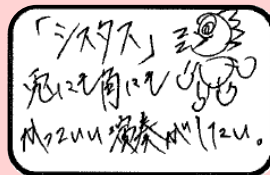 「シスタス」
兎にも角にも
かっこいい演奏がしたい。